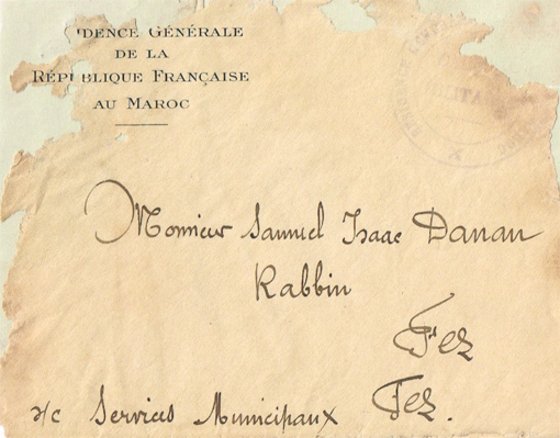 DENCE GÉNÉRALE
DE LA
RÉPUBLIQUE FRANÇAISE
AU MAROC
Monsieur Samuel Isaac Danan
Rabbin
Fez
a/c Services Municipaux Fez.